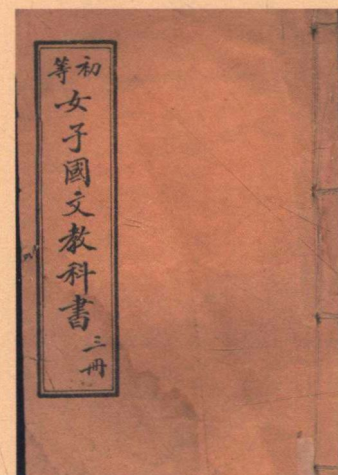 初等女子國文教科書三冊